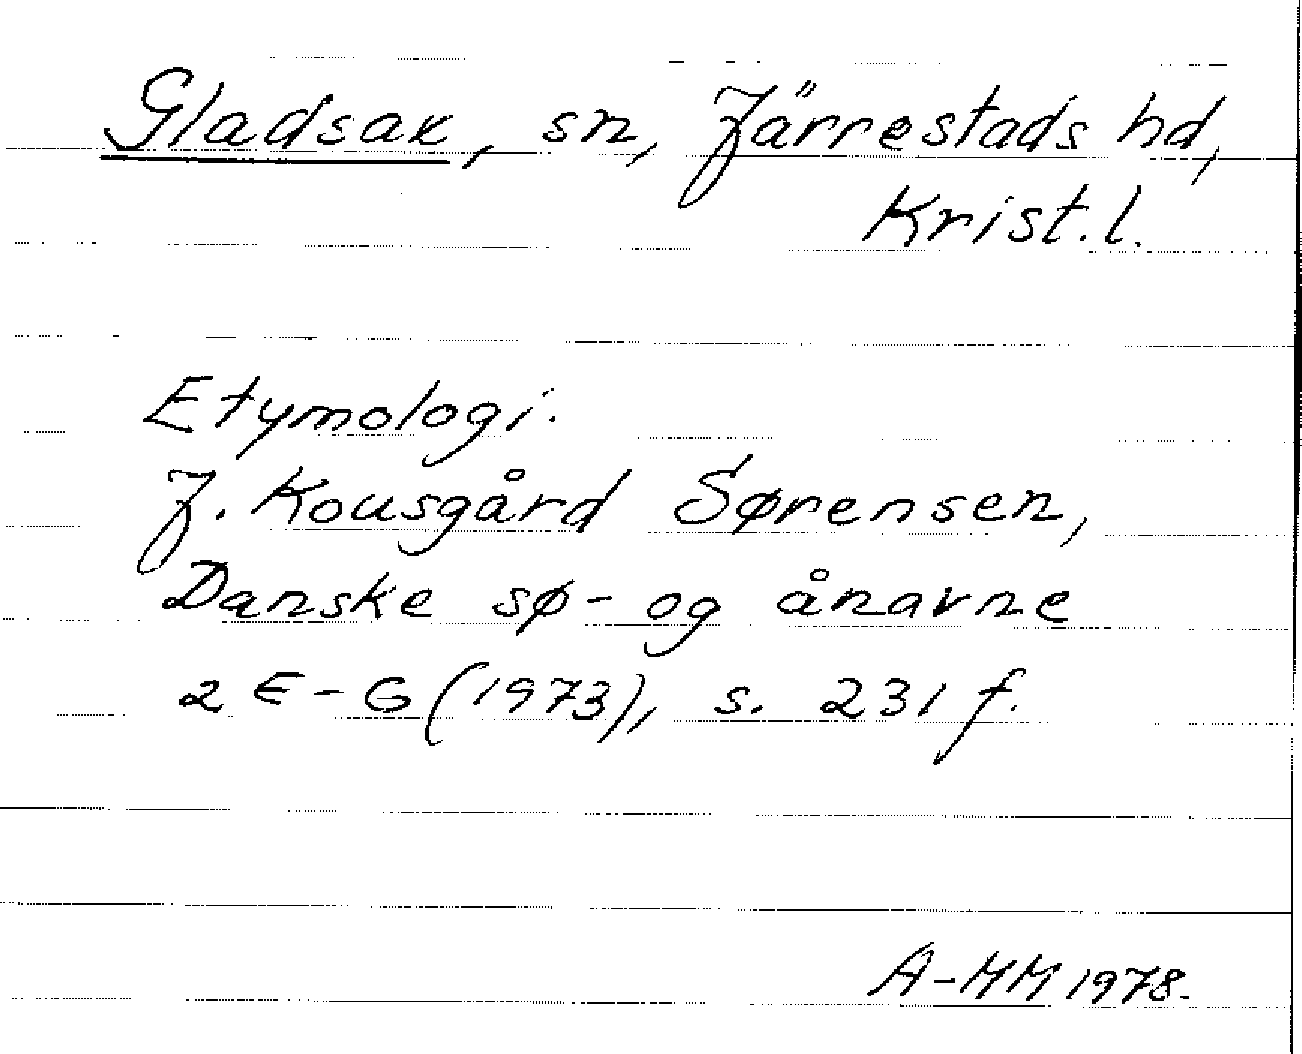 Gladsax, sn, Järrestads hd,
Krist. l.
Etymologi.
J. Kousgård Sørensen,
Danske sø- og ånavne
2 E-G (1973), s. 231 f.
A-MM 1978.